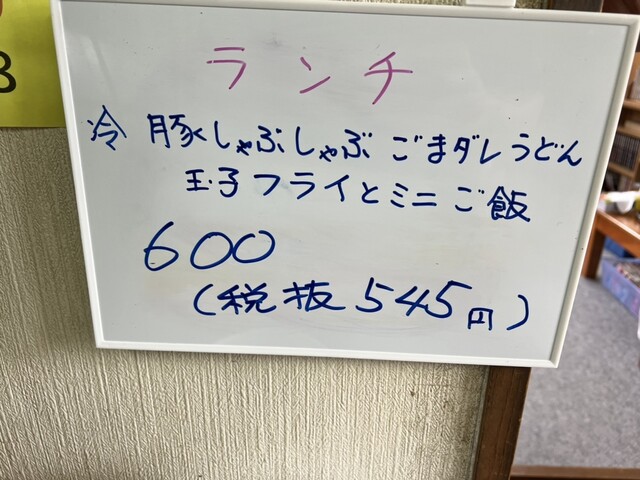 ランチ
冷 豚しゃぶしゃぶ ごまダレうどん
玉子フライとミニご飯
600
(税抜545円)
3